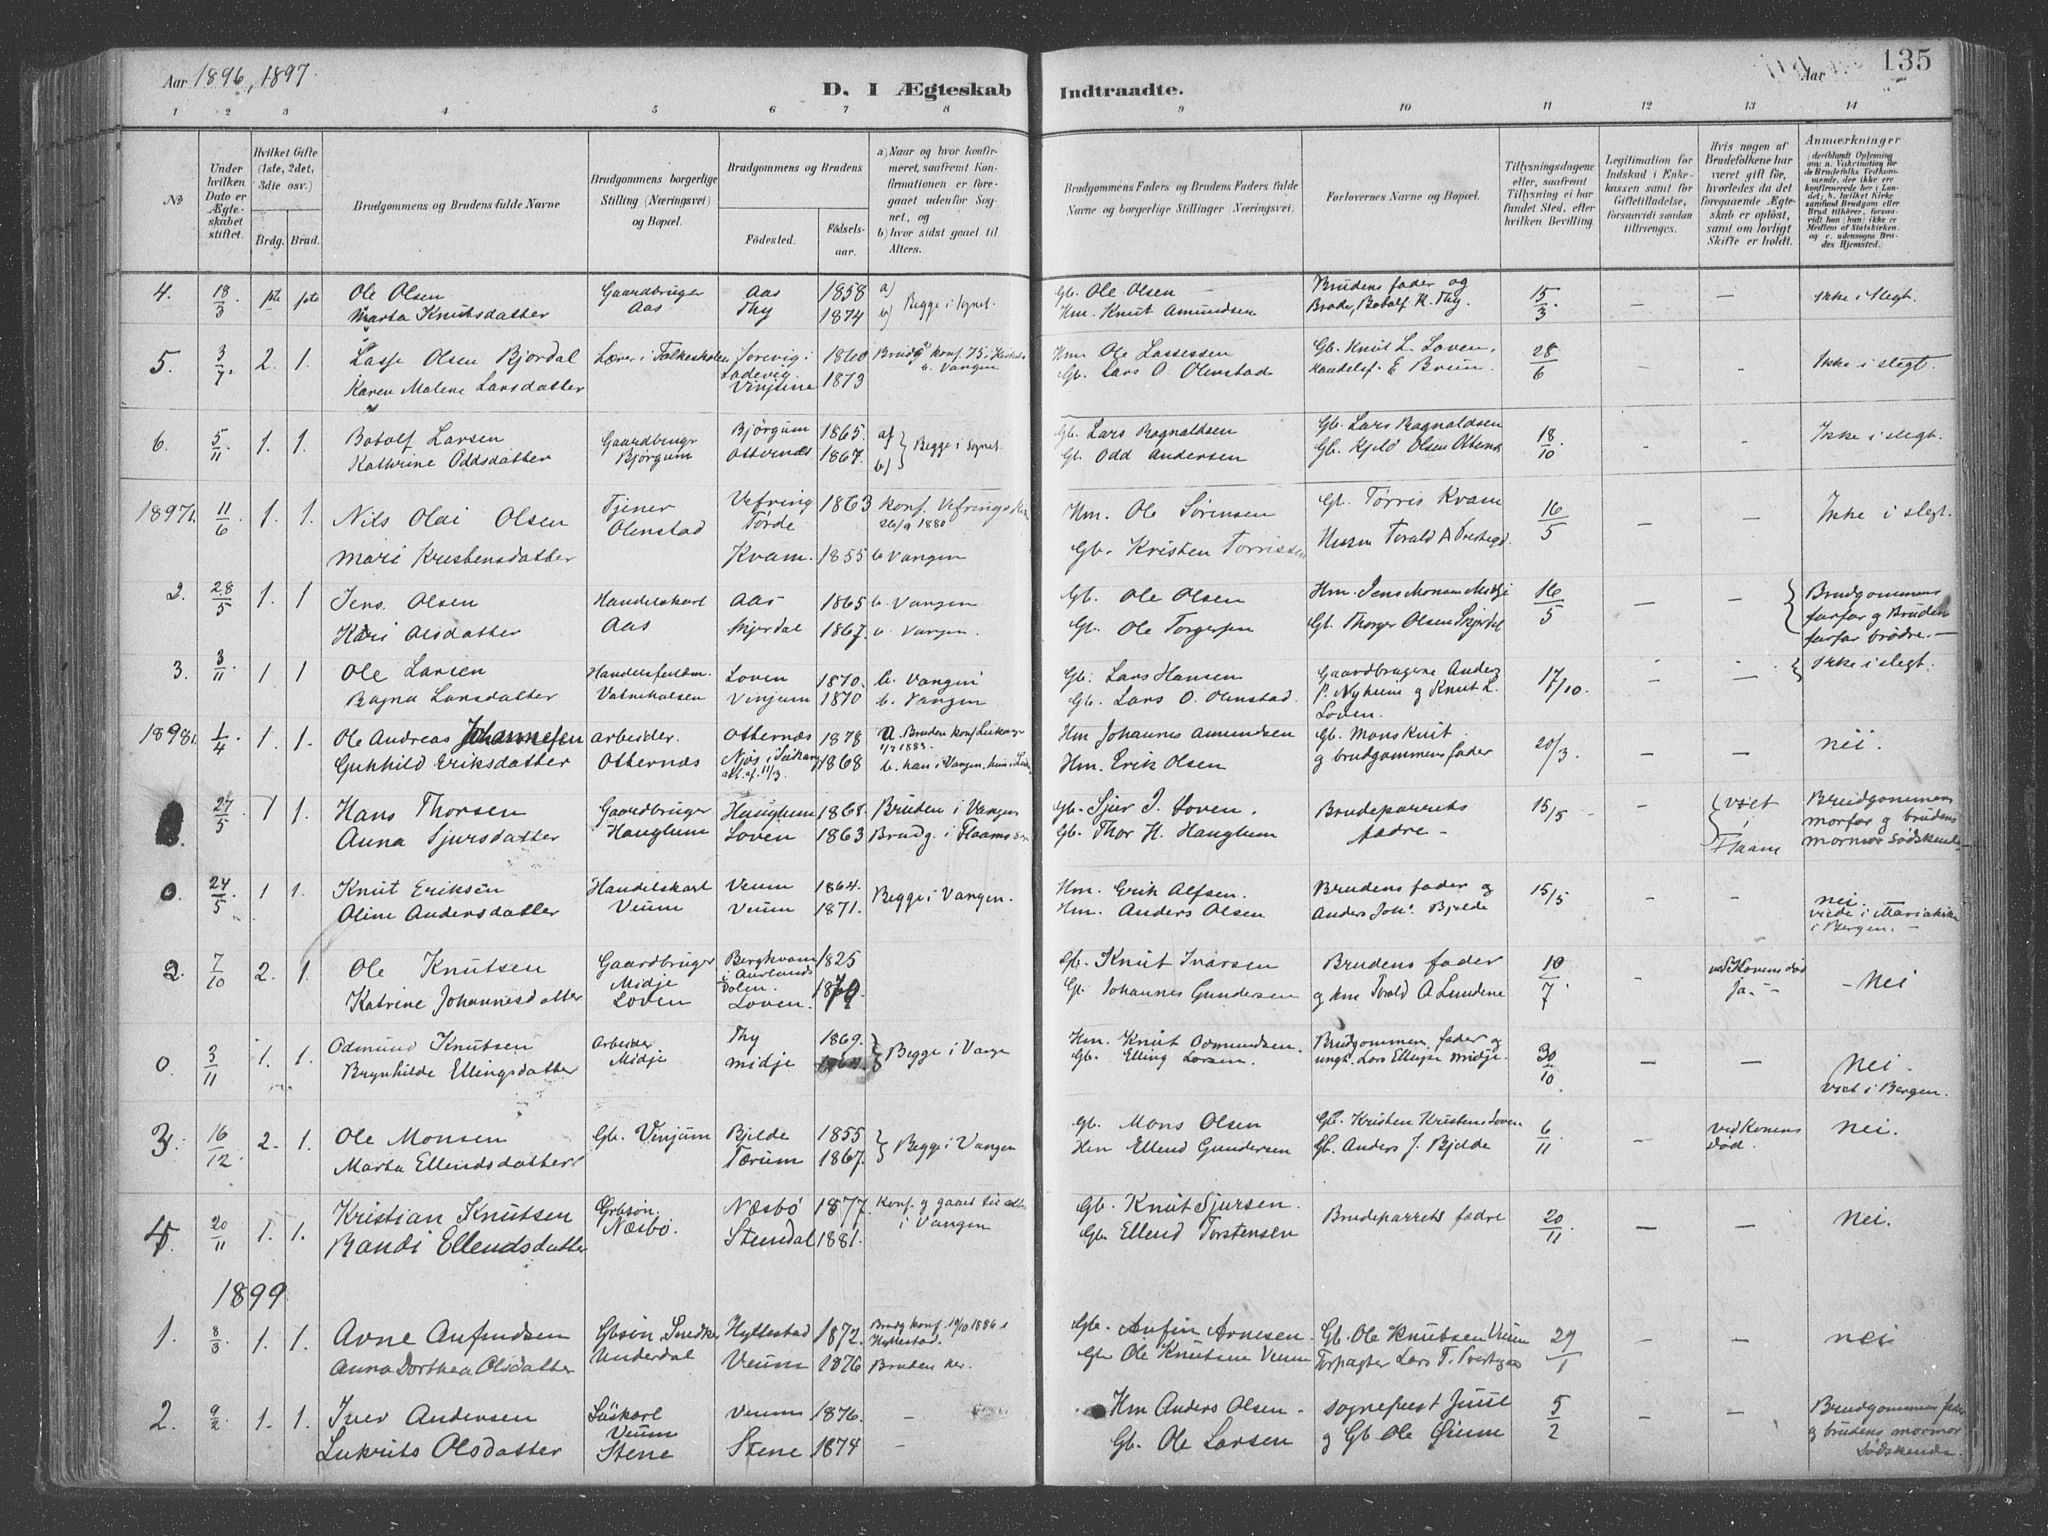 Aar 1896, 1897.
D. I Ægteskab Indtraadte.
Aar 135
1 2 3 4 5 6 7 8 9 10 11 12 13 14
No
Under hvilken Dato er Ægteskabet stiftet.
Hvilket Gifte (1ste, 2det, 3die osv.)
Brdg. Brud.
Brudgommens og Brudens fulde Navne
Brudgommens borgerlige Stilling (Næringsvei) og Bopæl.
Brudgommens og Brudens
Fødested.
Fødselsaar.
a) Naar og hvor konfirmeret, saafremt Konfirmationen er foregaaet udenfor Sognet, og
b) hvor sidst gaaet til Alters.
Brudgommens Faders og Brudens Faders fulde Navne og borgerlige Stillinger (Næringsvei).
Forlovernes Navne og Bopæl.
Tillysningsdagene eller, saafremt Tillysning ei har fundet Sted, efter hvilken Bevilling.
Legitimation for Indskud i Enkekassen samt for Giftetilladelse, forsaavidt saadan tiltrænges.
Hvis nogen af Brudefolkene har været gift før, hvorledes da det foregaaende Ægteskab er opløst, samt om lovligt Skifte er holdt.
Anmærkninger
(deriblandt Oplysning om: a. Vakcination for de Brudefolks Vedkommende, der ikke ere konfirmerede her i Landet; b. hvilket Kirkesamfund Brudgom eller Brud tilhører, forsaavidt han (hun) ikke er Medlem af Statskirken, og c. udensogns Brudes Hjemsted.)
4. 18/3 1ste 1ste Ole Olsen Gaardbruger Aas 1858 a) Gb. Ole Olsen Brudens fader og 15/3 — — Ikke i slegt.
Marta Knutsdatter Aas Thy 1874 b) Begge i Sognet. Hm. Knut Amundsen Broder, Botolf K. Thy.
5. 3/7. 2. 1. Lasse Olsen Bjordal Lærer i Folkeskolen Sorevig i Ladevig 1860 Brudg. konf. 75 i Hm Ole Lassessen Gb. Knut L. Loven. 28/6 - - Ikke i slegt.
Karen Malene Larsdatter Vinjune 1873 b. Vangen Gb. Lars O. Olenstad Handelsf. E Brun.
6. 5/11 1. 1. Botolf Larsen Gaardbrugr Bjørgum 1865. a) Gb. Lars Ragnaldsen Gb. Lars Ragnaldsen 18/10 - - Ikke i slegt.
Kathrine Oddsdatter Bjørgum Otternæs 1867. b) Begge i Sognet. Gb. Odd Andersen Gb. Kjeld Olsen Otternæs
1897 1. 11/6 1. 1. Nils Olai Olsen Tjener Vefring Førde 1863 Konf. Vefrings Kirke 26/9 1880 Hm. Ole Sørensen Gb. Tørris Kvam 16/5 — — Ikke i slegt.
Mari Kristensdatter Olenstad Kvam. 1855 b. Vangen Gb. Kristen Torrissen Husm Torald A Prestegd.
2. 28/5 1. 1 Jens Olsen Handelskarl Aas 1865 b. Vangen Gb. Ole Olsen Hm. Jens Monsen 16/5 — — Brudgommens farfar og Brudens farfar brødre. —
Kari Olsdatter Aas Skjerdal 1867. b. Vangen. Gb. Ole Torgersen Gb. Thorger Olsen Skjerdal
3. 3/11 1 1 Ole Larsen Handelsfuldm. Loven 1870. b. Vangen Gb. Lars Hansen Gaardbrugerne Anders 17/10. — — Ikke i slegt.
Ragna Larsdatter Vatneholsen Vinjum 1870 b. Vangen Gb. Lars O. Olenstad P. Nyheim og Knut L. Loven.
1898 1. 1/4 1. 1. Ole Andreas Johannesen arbeider. Otternæs 1878 a. Bruden konf. Leikanger 1883. Hm Johannes Amundsen Gb. Mons Knut 20/3 — — nei.
Gunhild Eriksdatter Otternæs Njøs i Leikang. att. af 11/3 1868 b. han i Vangen, hun i Hm. Erik Olsen og brudgommens fader
27/5 1 1. Hans Thorsen Gaardbruger Hauglum 1868. Bruden i Vangen Gb. Sjur J. Loven. Brudeparrets 15/5 - viet i Flaam Brudgommens morfar og brudens mormor Sødskende —
Anna Sjursdatter Hauglum Loven 1863 Brudg. i Flaam Gb. Thor H. Hauglum fædre —
0 24/5 1 1. Knut Eriksen Handelskarl Veum 1864. Begge i Vangen. Hm. Erik Alfsen. Brudens fader og 15/5 - - nei. viede i Mariakirken i Bergen. —
Oline Andersdatter Veum Veum 1871. Hm. Anders Olsen Anders Johs. Bjelde
2. 7/10 2. 1. Ole Knutsen Gaardbruger Midje Bergkvam i Aurlandsdalen. 1825 Gb. Knut Ivarsen Brudens fader 10/7 - ved Konens død Ja. — - Nei
Katrine Johannesdatter Loven Loven. 1870. Gb. Johannes Gundersen og hm Torald A Lundene
0. 3/11 1. 1. Odmund Knutsen Arbeider Thy 1869. Begge i Vange Hm. Knut Odmundsen. Brudgommen fader og 30/10 — — Nei. viet i Bergen.
Brynhilde Ellingsdatter Midje Midje Gb. Elling Larsen. ungk. Lars Ellingsen Midje.
3. 16/12 2. 1. Ole Monsen Gb. Vinjum Bjelde 1855 Begge i Vangen Gb. Mons Olsen Gb. Kristen Kristens Loven 6/11 — ved Konens død. Nei.
Marta Ellendsdatter Tærum 1867. Hm Ellend Gundersen Gb. Anders J. Bjelde
4. 20/11 1. 1. Kristian Knutsen Gbsøn. Næsbø 1877. Konf. og gaaet til alters i Vangen Gb. Knut Sjursen. Brudeparrets fædre 20/11. — — Nei.
Randi Ellendsdatter Næsbø. Stundal 1881. Gb. Ellend Torstensen
1899
1. 8/3 1. 1. Arne Anfindsen Gbsøn. Snedker Hyllestad 1872. Brudg konf. 1886 i Hyllestad. Gb. Anfin Arnesen. Gb. Ole Knutsen Veum 29/1 — — nei
Anna Dorthea Olsdatter Underdal Veum 1876 Bruden her. Gb Ole Knutsen Veum Forpagter Lars T. Prestegaa
2. 9/2 1. 1. Iver Andersen Løskarl Veum Veum 1876. — Hm Anders Olsen. sogneprest Juul 5/2 - - Brudgommens fader og brudens mormor Sødskende.
Lukrits Olsdatter Stene Stene 1874 — Gb. Ole Larsen og Gb Ole Øium